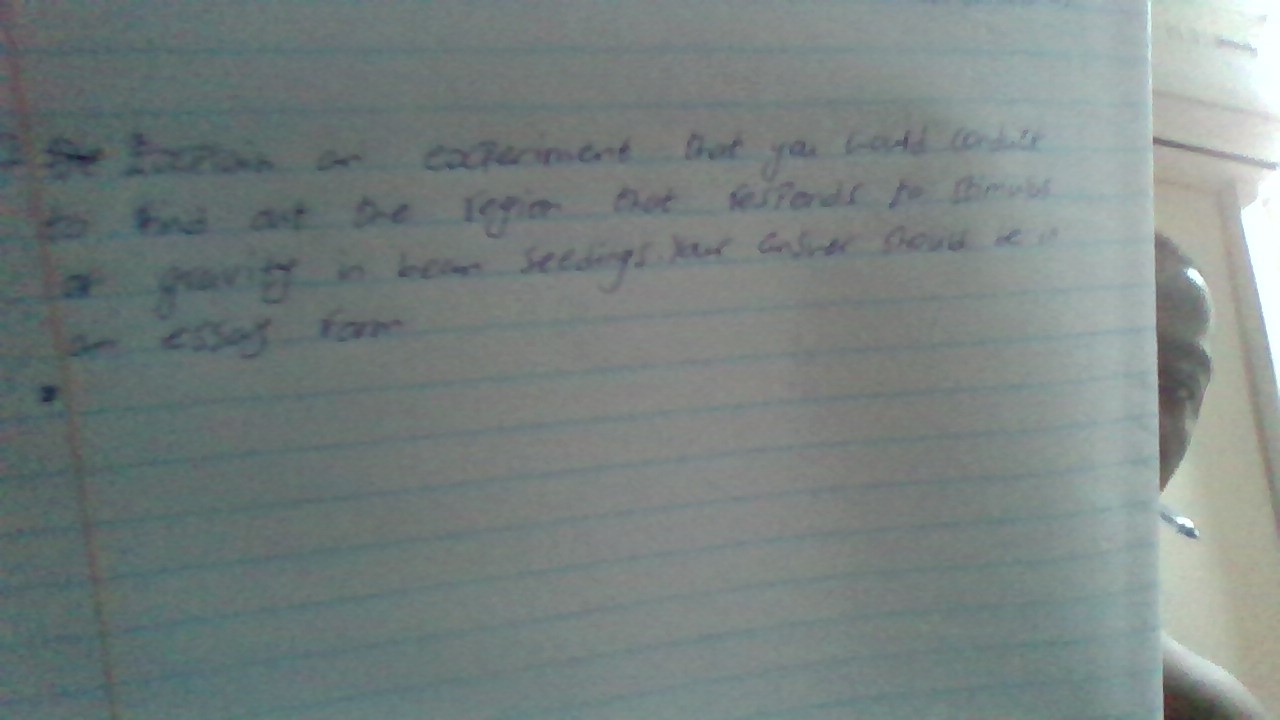 Explain an experiment that you would conduct
to find out the region that responds to stimulus
of gravity in bean seedings. Your answer should be in
an essay form